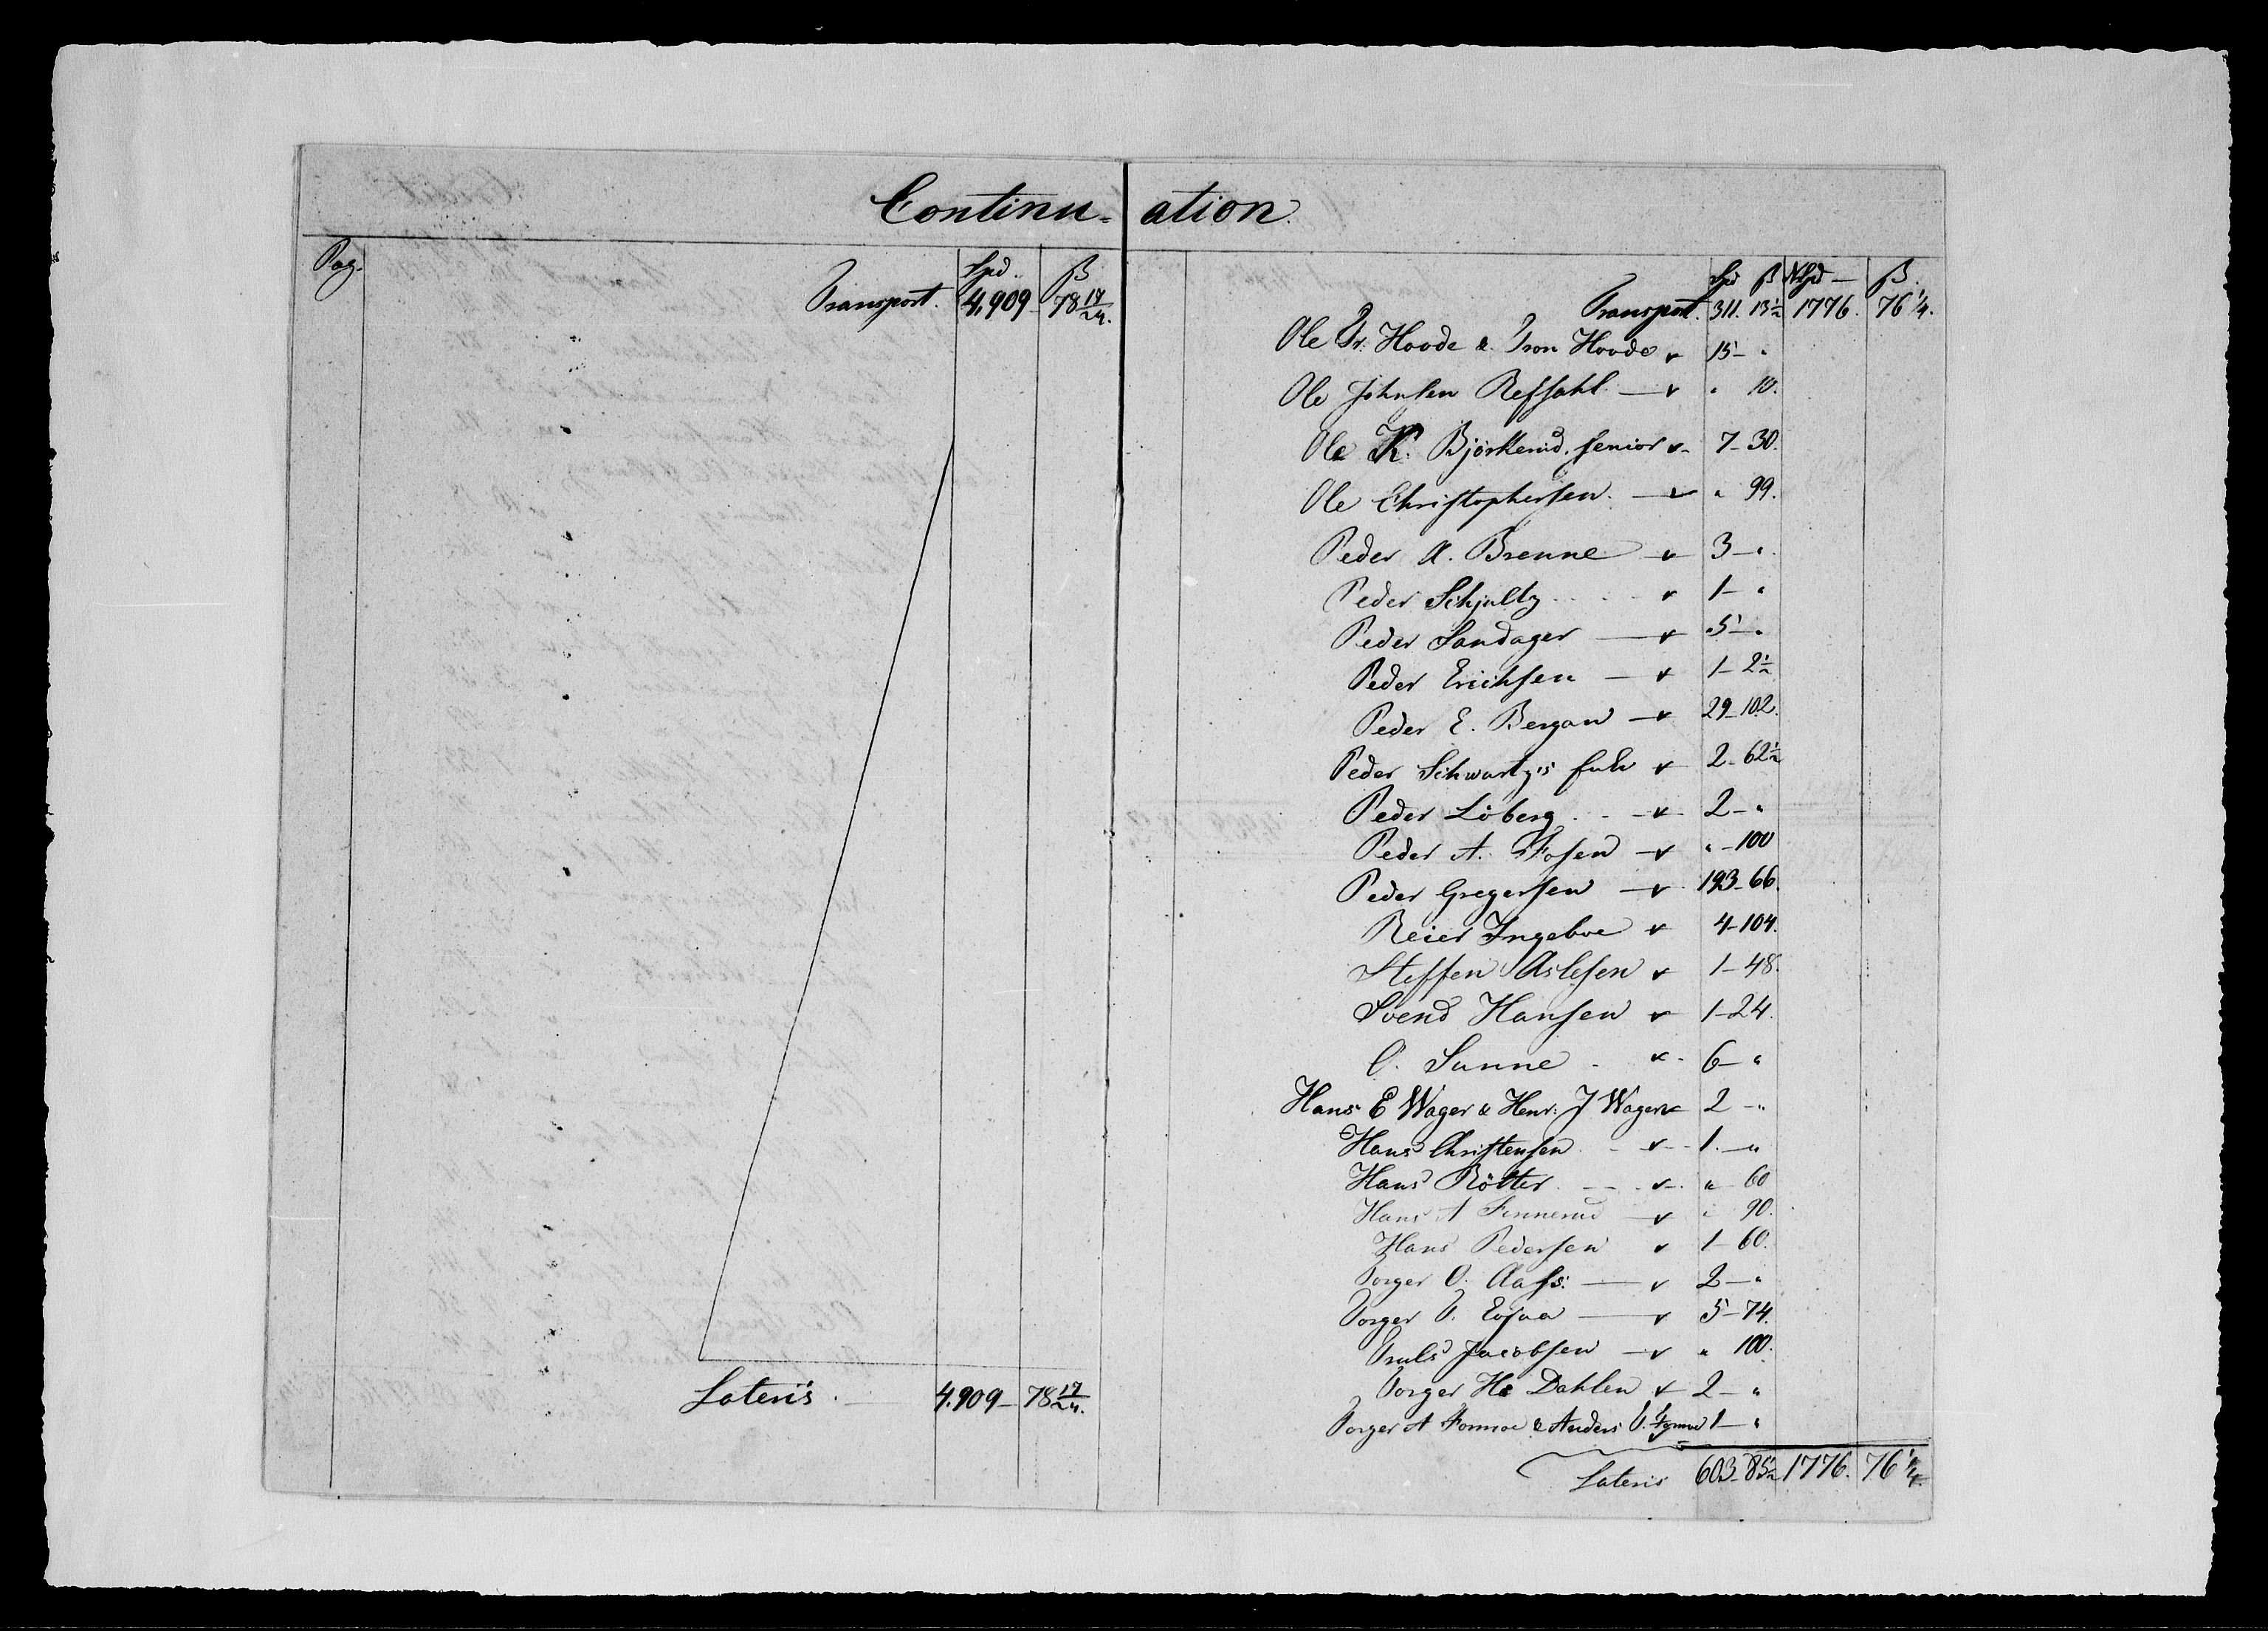 Continu- ation.
Pag. Spd. ß
Transport. 4,909 - 78 17/24.
Lateris. 4.909 - 78 17/24.
Spd ß Spd ß
Transport. 311. 13½ 1776. 76 ¼.
Ole Tr. Hovde & Tron Hovde v 15 - "
Ole Johnsen Refsahl - v " 10.
Ole K. Björkerud, senior v - 7 - 30.
Ole Christophersen. - v " 99.
Peder A. Brenne - v 3 - "
Peder Schjultz . . . v 1 - "
Peder Sandager - v 5 - "
Peder Erichsen - v 1 - 2½
Peder E. Bergan - v 29 - 102.
Peder Schwartz's v 2 - 62½
Peder Löberg . - v - 2 - "
Peder A. Fosen - v " - 100
Peder Gregersen - v - 193 - 66.
Reier Ingeboe v 4 - 104.
Steffen Aslesen v 1 - 48.
Svend Hansen v 1 - 24.
O. Sunne - v - 6 - "
Hans E Wager & Henr: J Wager v 2 - "
Hans Christensen - v - 1. - "
Hans Rötter. - v - " 60
Hans A Finnerud - v " 90.
Hans Pedersen v 1 - 60.
Torger O. Aass: - v 2 - "
Torger - v 5 - 74.
Truls Jacobsen - v " 100.
Torger He Dahlen v 2 - "
Torger A Formoe & Anders 1 - "
Lateris 603 - 85½ 1776. 76 ¼.